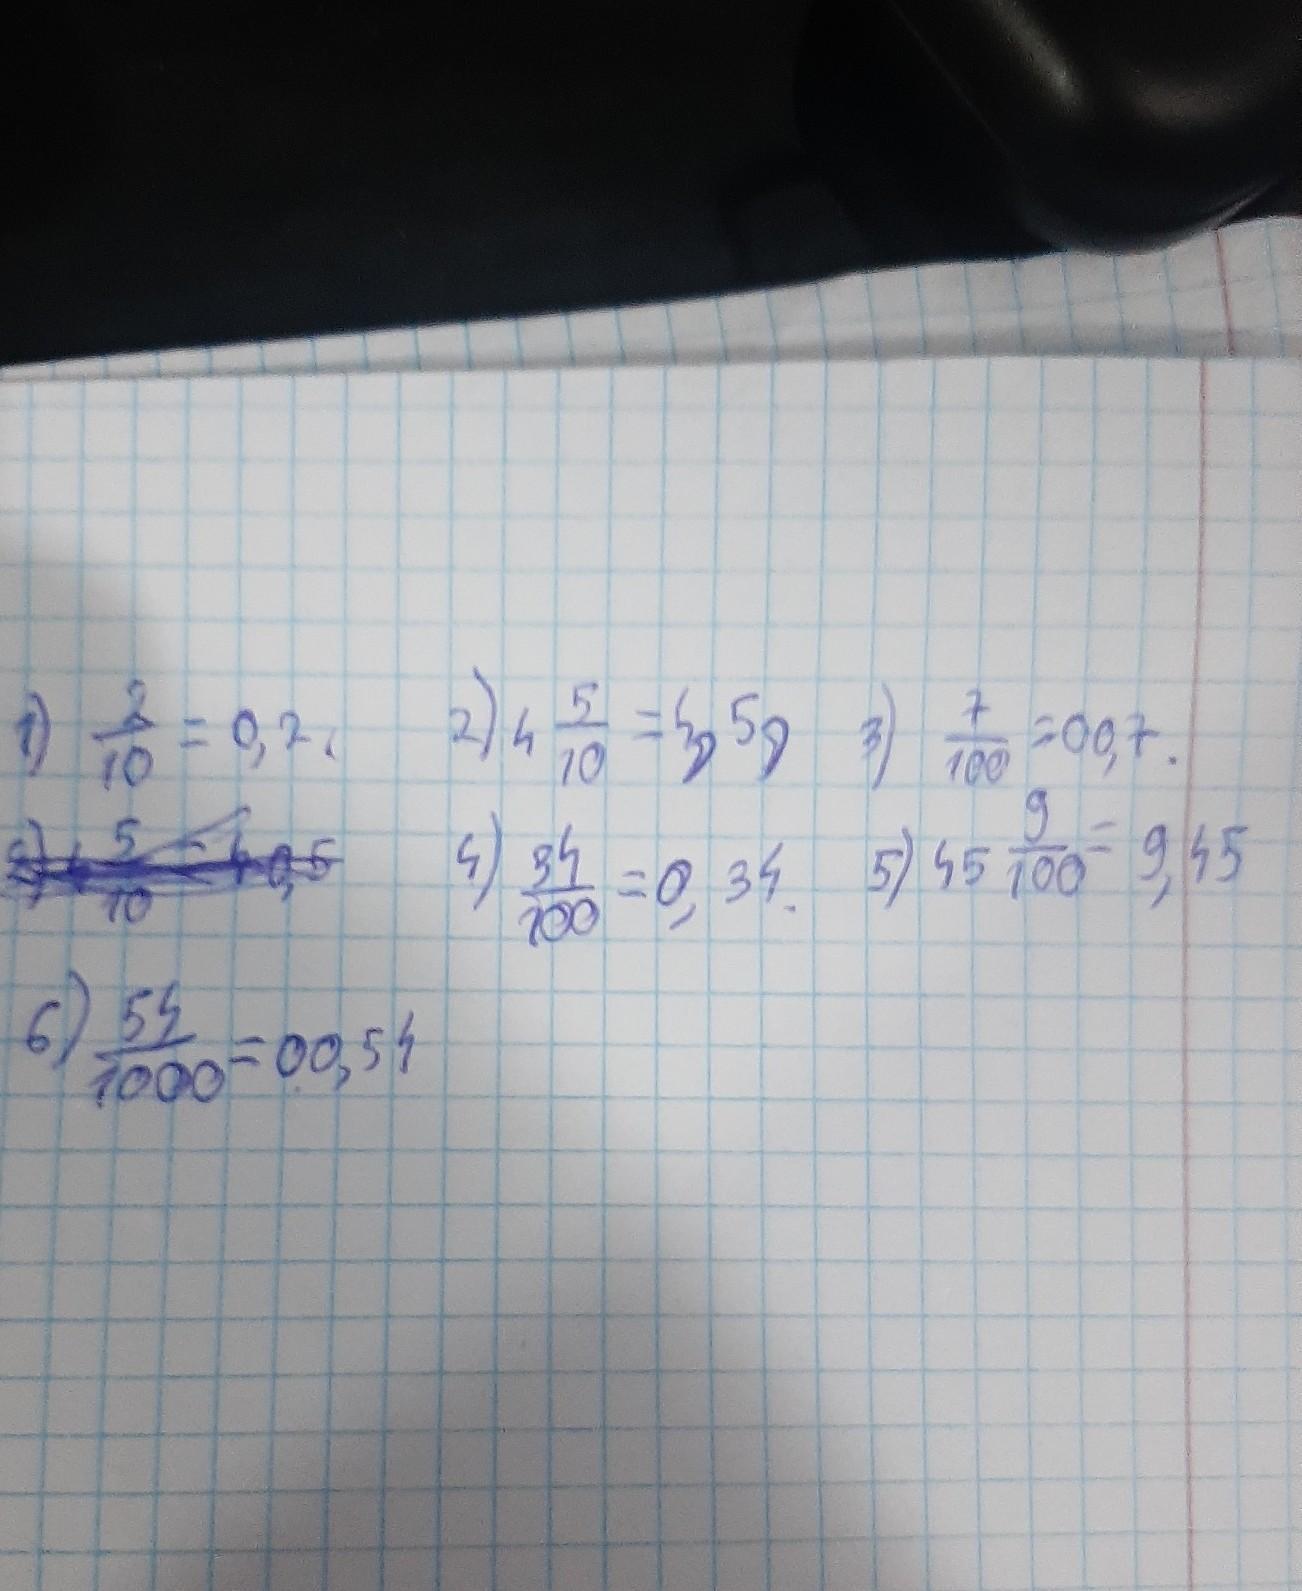 1) 2/10 = 0,2. 2) 4 5/10 = 4,5, 3) 7/100 = 00,7.
4) 34/100 = 0,34. 5) 45 9/100 = 9,45
6) 54/1000 = 00,54